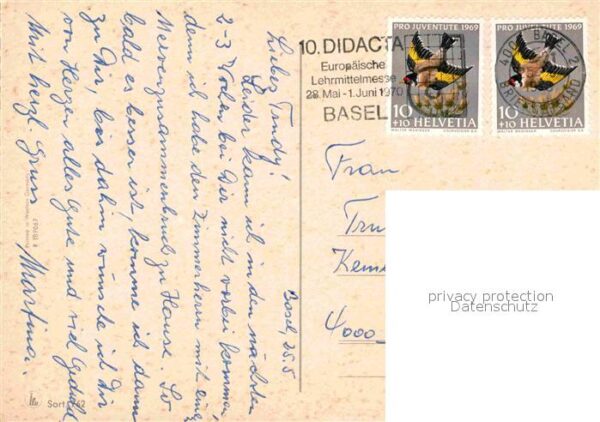 Basel, 25.5
Liebes Trudy!
Leider kann ich in den nächsten
2-3 Wochen bei Dir nicht vorbei kommen,
denn ich habe den Zimmerherrn mit eine
Nervenzusammenbruch zu Hause. So
bald es besser ist, komme ich dann
zu Dir, bis dahin wünsche ich Dir
von Herzen alles Gute und viel Geduld
Mit herzl. Gruss
Martina.
10. DIDACTA
Europäische
Lehrmittelmesse
28. Mai - 1. Juni 1970
BASEL
PRO JUVENTUTE 1969
10
+10 HELVETIA
PRO JUVENTUTE 1969
10
+10 HELVETIA
4000 BASEL 2
Frau
Tru
Kem
4000
privacy protection
Datenschutz
Sort